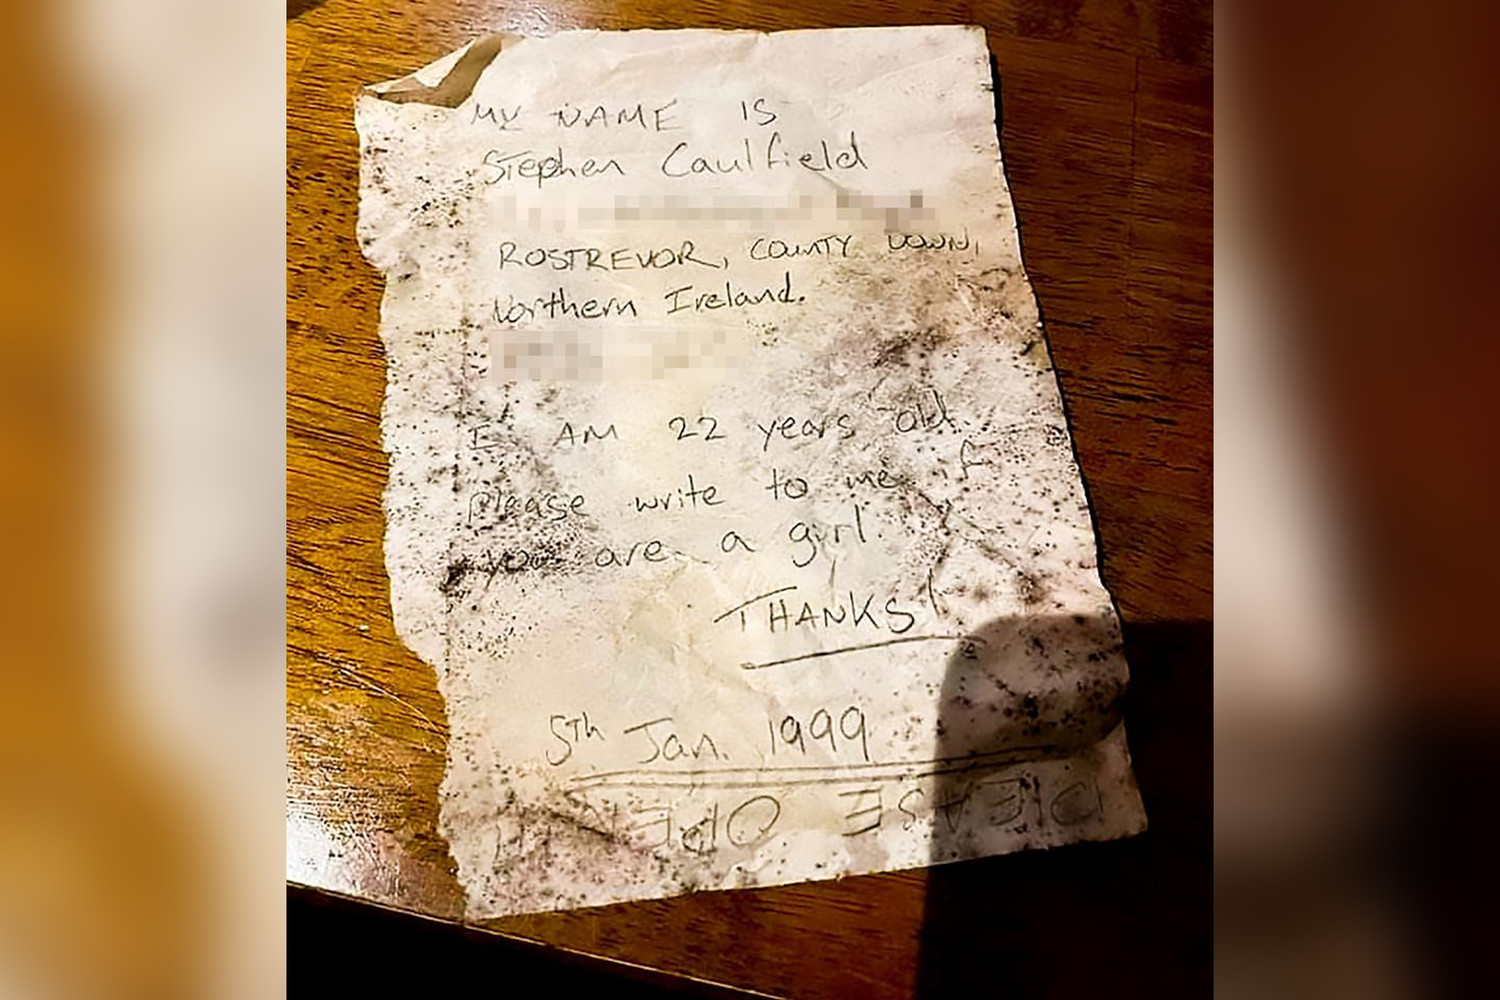 MY NAME IS
Stephen Caulfield
ROSTREVOR, COUNTY DOWN,
Northern Ireland.
I AM 22 years old.
please write to me if
you are a girl.
THANKS!
5th Jan. 1999
PLEASE OPEN